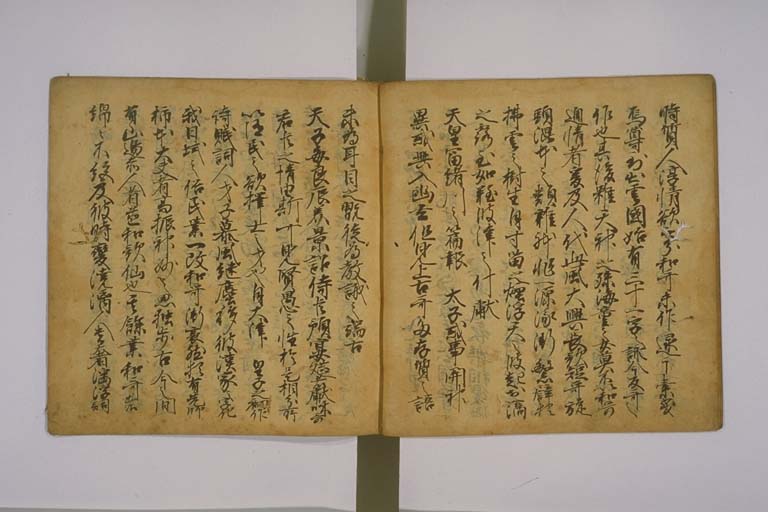 時質人淳情欲無分和哥未作逮于素戔
烏尊到出雲國始有三十一字之詠今反哥之
作也其後雖天神之孫海童之女莫不以和哥
通情者爰及人代此風大興長哥短哥旋
頭混本之類雜躰非一源流漸繁譬猶
拂雲之樹生自寸苗之煙浮天之波起於一滴
之露至如難波津之什獻
天皇富緒川之篇報太子或事関神
異或興入幽玄但見上古哥多存古質之語
未為耳目之翫徒為教誡之端古
天子每良辰美景詔侍臣預宴莚者獻和哥
君臣之情由斯可見賢愚之性於是相分所
以随民之欲擇士之才也自大津皇子之初作
詩賦詞人才子慕風継塵移彼漢家之字化
我日域之俗民業一改和哥漸衰然猶有先師
柿本大夫者高振神妙之思独步古今之間
有山邊赤人者並和歌仙也其餘業和哥者
綿々不絶及彼時變澆漓人貴奢淫浮詞